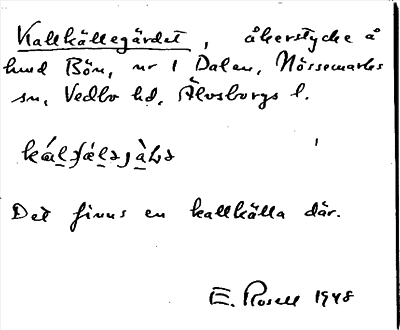 Kallkällegärdet, åkerstycke å
hmd Bön, nr 1 Dalen, Nössemarks
sn, Vedbo hd, Älvsborgs l.
Det finns en kallkälla där.
E. Rosell 1948